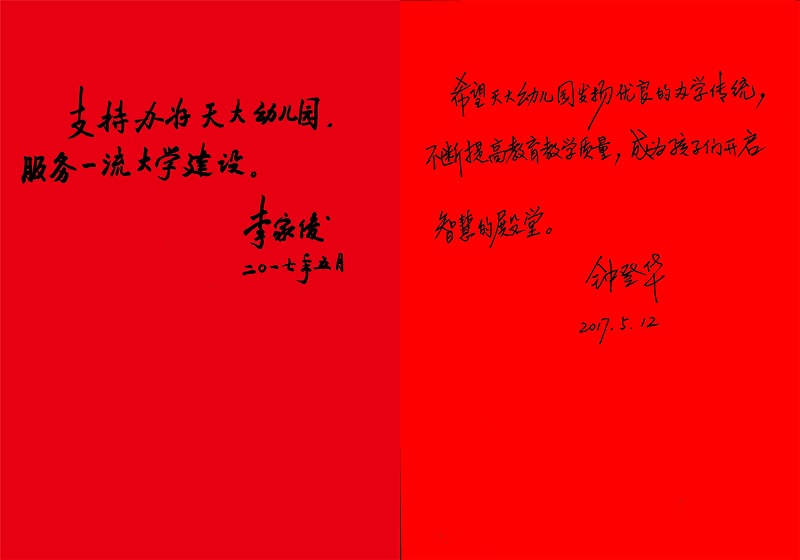 支持办好天大幼儿园.
服务一流大学建设。
李家俊
二〇一七年五月
希望天大幼儿园发扬优良的办学传统,
不断提高教育教学质量,成为孩子们开启
智慧的殿堂。
钟登华
2017.5.12